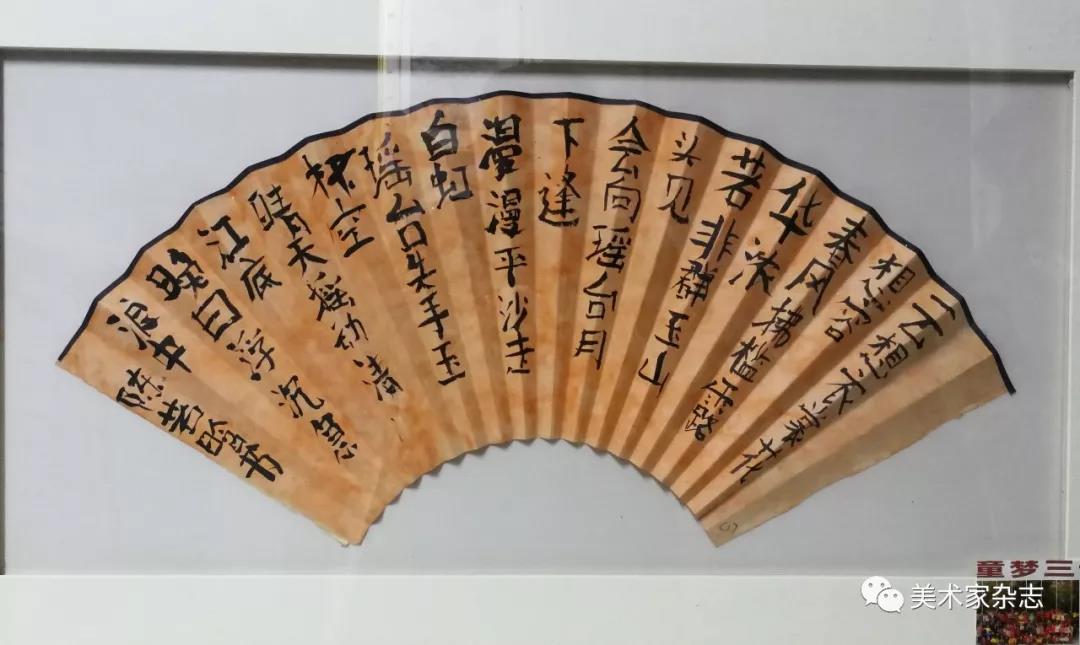 云想衣裳花
想容
春风拂槛露
华浓
若非群玉山
头见
会向瑶台月
下逢
漫漫平沙走
白虹
瑶台失手玉
杯空
晴天摇动清
江底
晚日浮沉急
浪中 陈若晗书
童梦三
美术家杂志